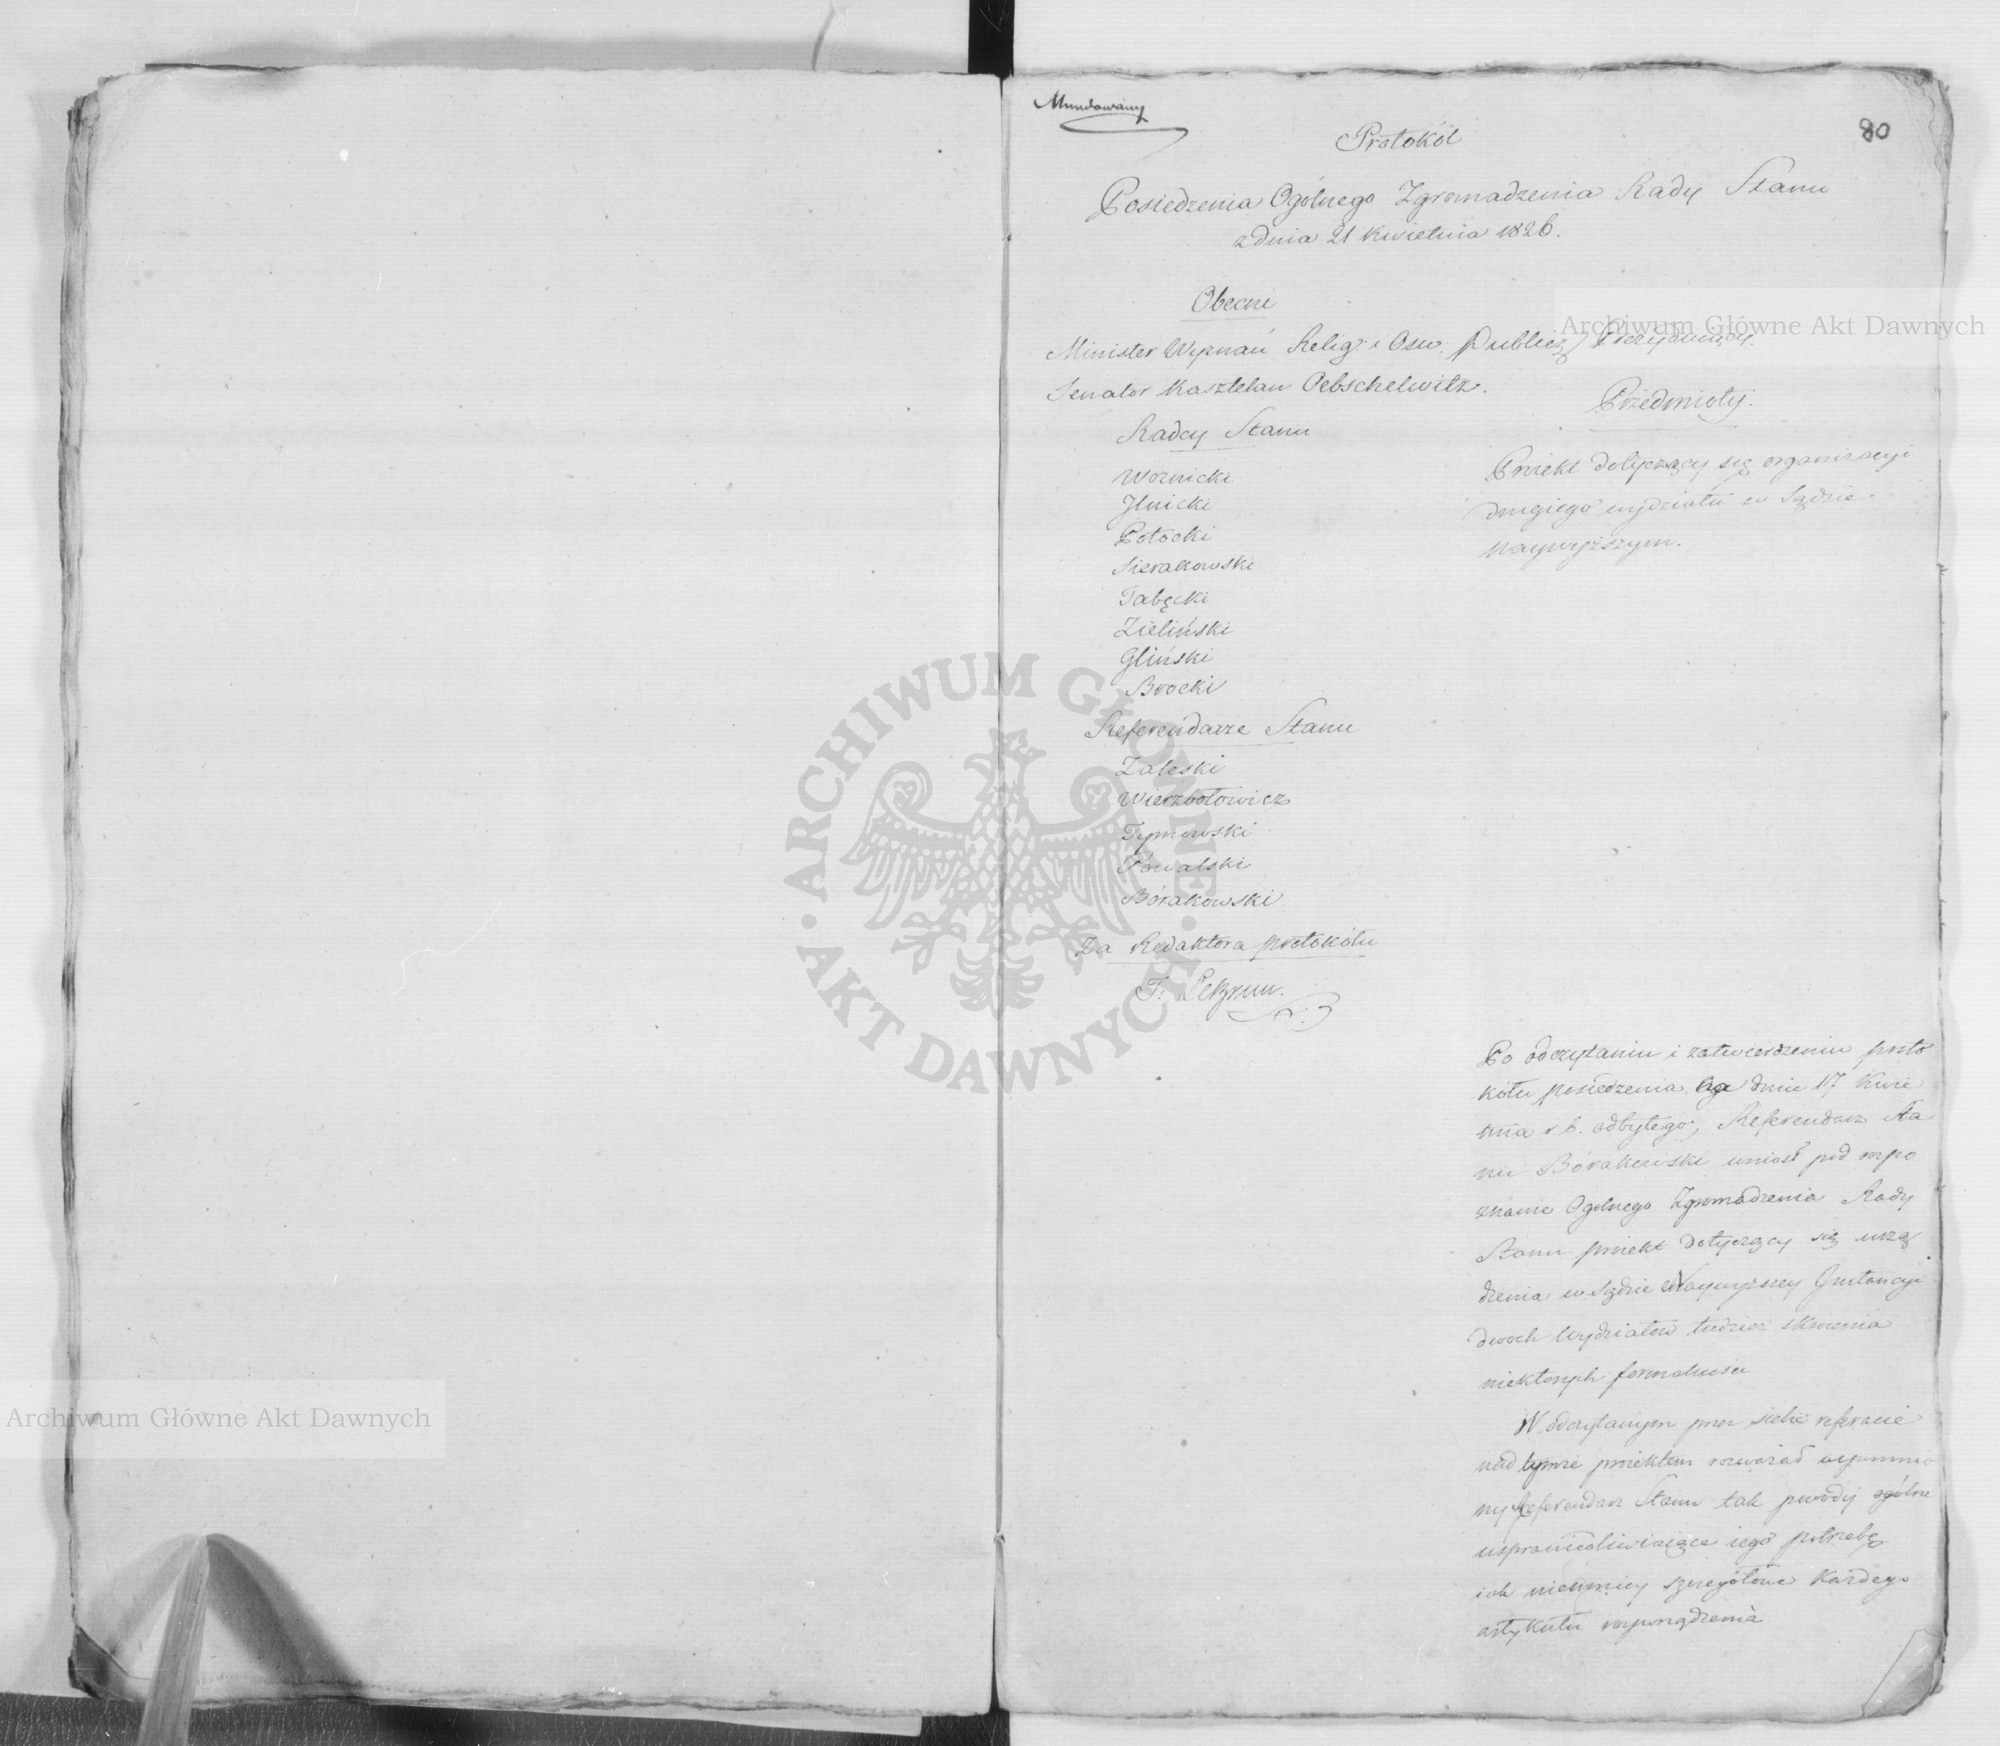 Mundowany
80
Protokół
Posiedzenia Ogólnego Zgromadzenia Rady Stanu
z dnia 21 Kwietnia 1826.
Obecni
Minister Wyznań Relig: i Osw: Publicz: Prezyduiący.
Senator Kasztelan Oebschelwitz.
Radcy Stanu
Woznicki
Ilnicki
Potocki
Sierakowski
Tabęcki
Zieliński
Gliński
Brocki
Referendarze Stanu
Zaleski
Wierzbołowicz
Tymowski
Powalski
Bórakowski
Za Redaktora protokółu
T: LeBrun.
Przedmioty.
Proiekt dotyczący się organizacyi
drugiego wydziału w Sądzie
Naywyższym.
Po odczytaniu i zatwierdzeniu proto
kółu posiedzenia dniu 17 Kwie
tnia r. b. odbytego, Referendarz Sta
nu Bórakowski wniosł pod rozpo
znanie Ogolnego Zgromadzenia Rady
Stanu proiekt dotyczący się urzą
dzenia w Sądzie Naywyższey Instancyi
dwoch Wydziałow tudzież skrocenia
niektorych formalności
W odczytanym przez siebie referacie
nad tymże proiektem rozważał wspomnio
ny Referendarz Stanu tak powody ogólne
usprawiedliwiaiące iego potrzebę
iak niemniey szczegółowe każdego
artykułu rozporządzenia
Archiwum Główne Akt Dawnych
Archiwum Główne Akt Dawnych
ARCHIWUM GŁÓWNE · AKT DAWNYCH ·